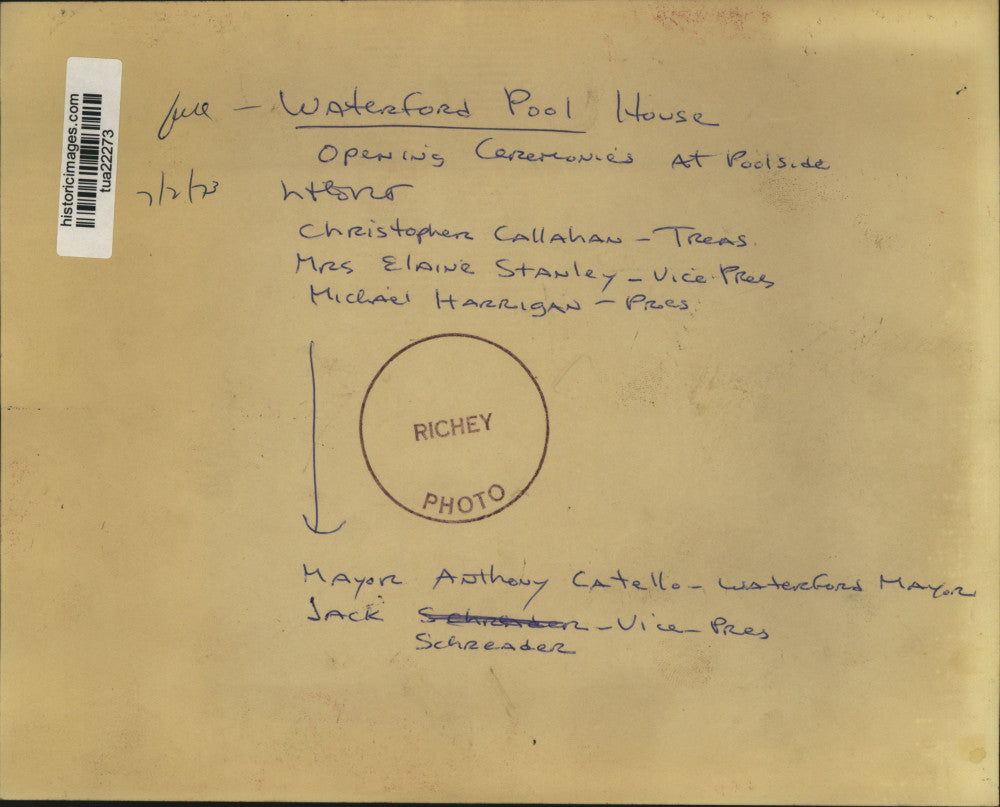 historicimages.com
tua22273
Waterford Pool House
Opening Ceremonies At Poolside
7/2/73
Christopher Callahan - Treas.
Mrs Elaine Stanley - Vice Pres
Michael Harrigan - Pres
RICHEY
PHOTO
Mayor Anthony Catello - Waterford Mayor
Jack Schreader - Vice - Pres
Schreader